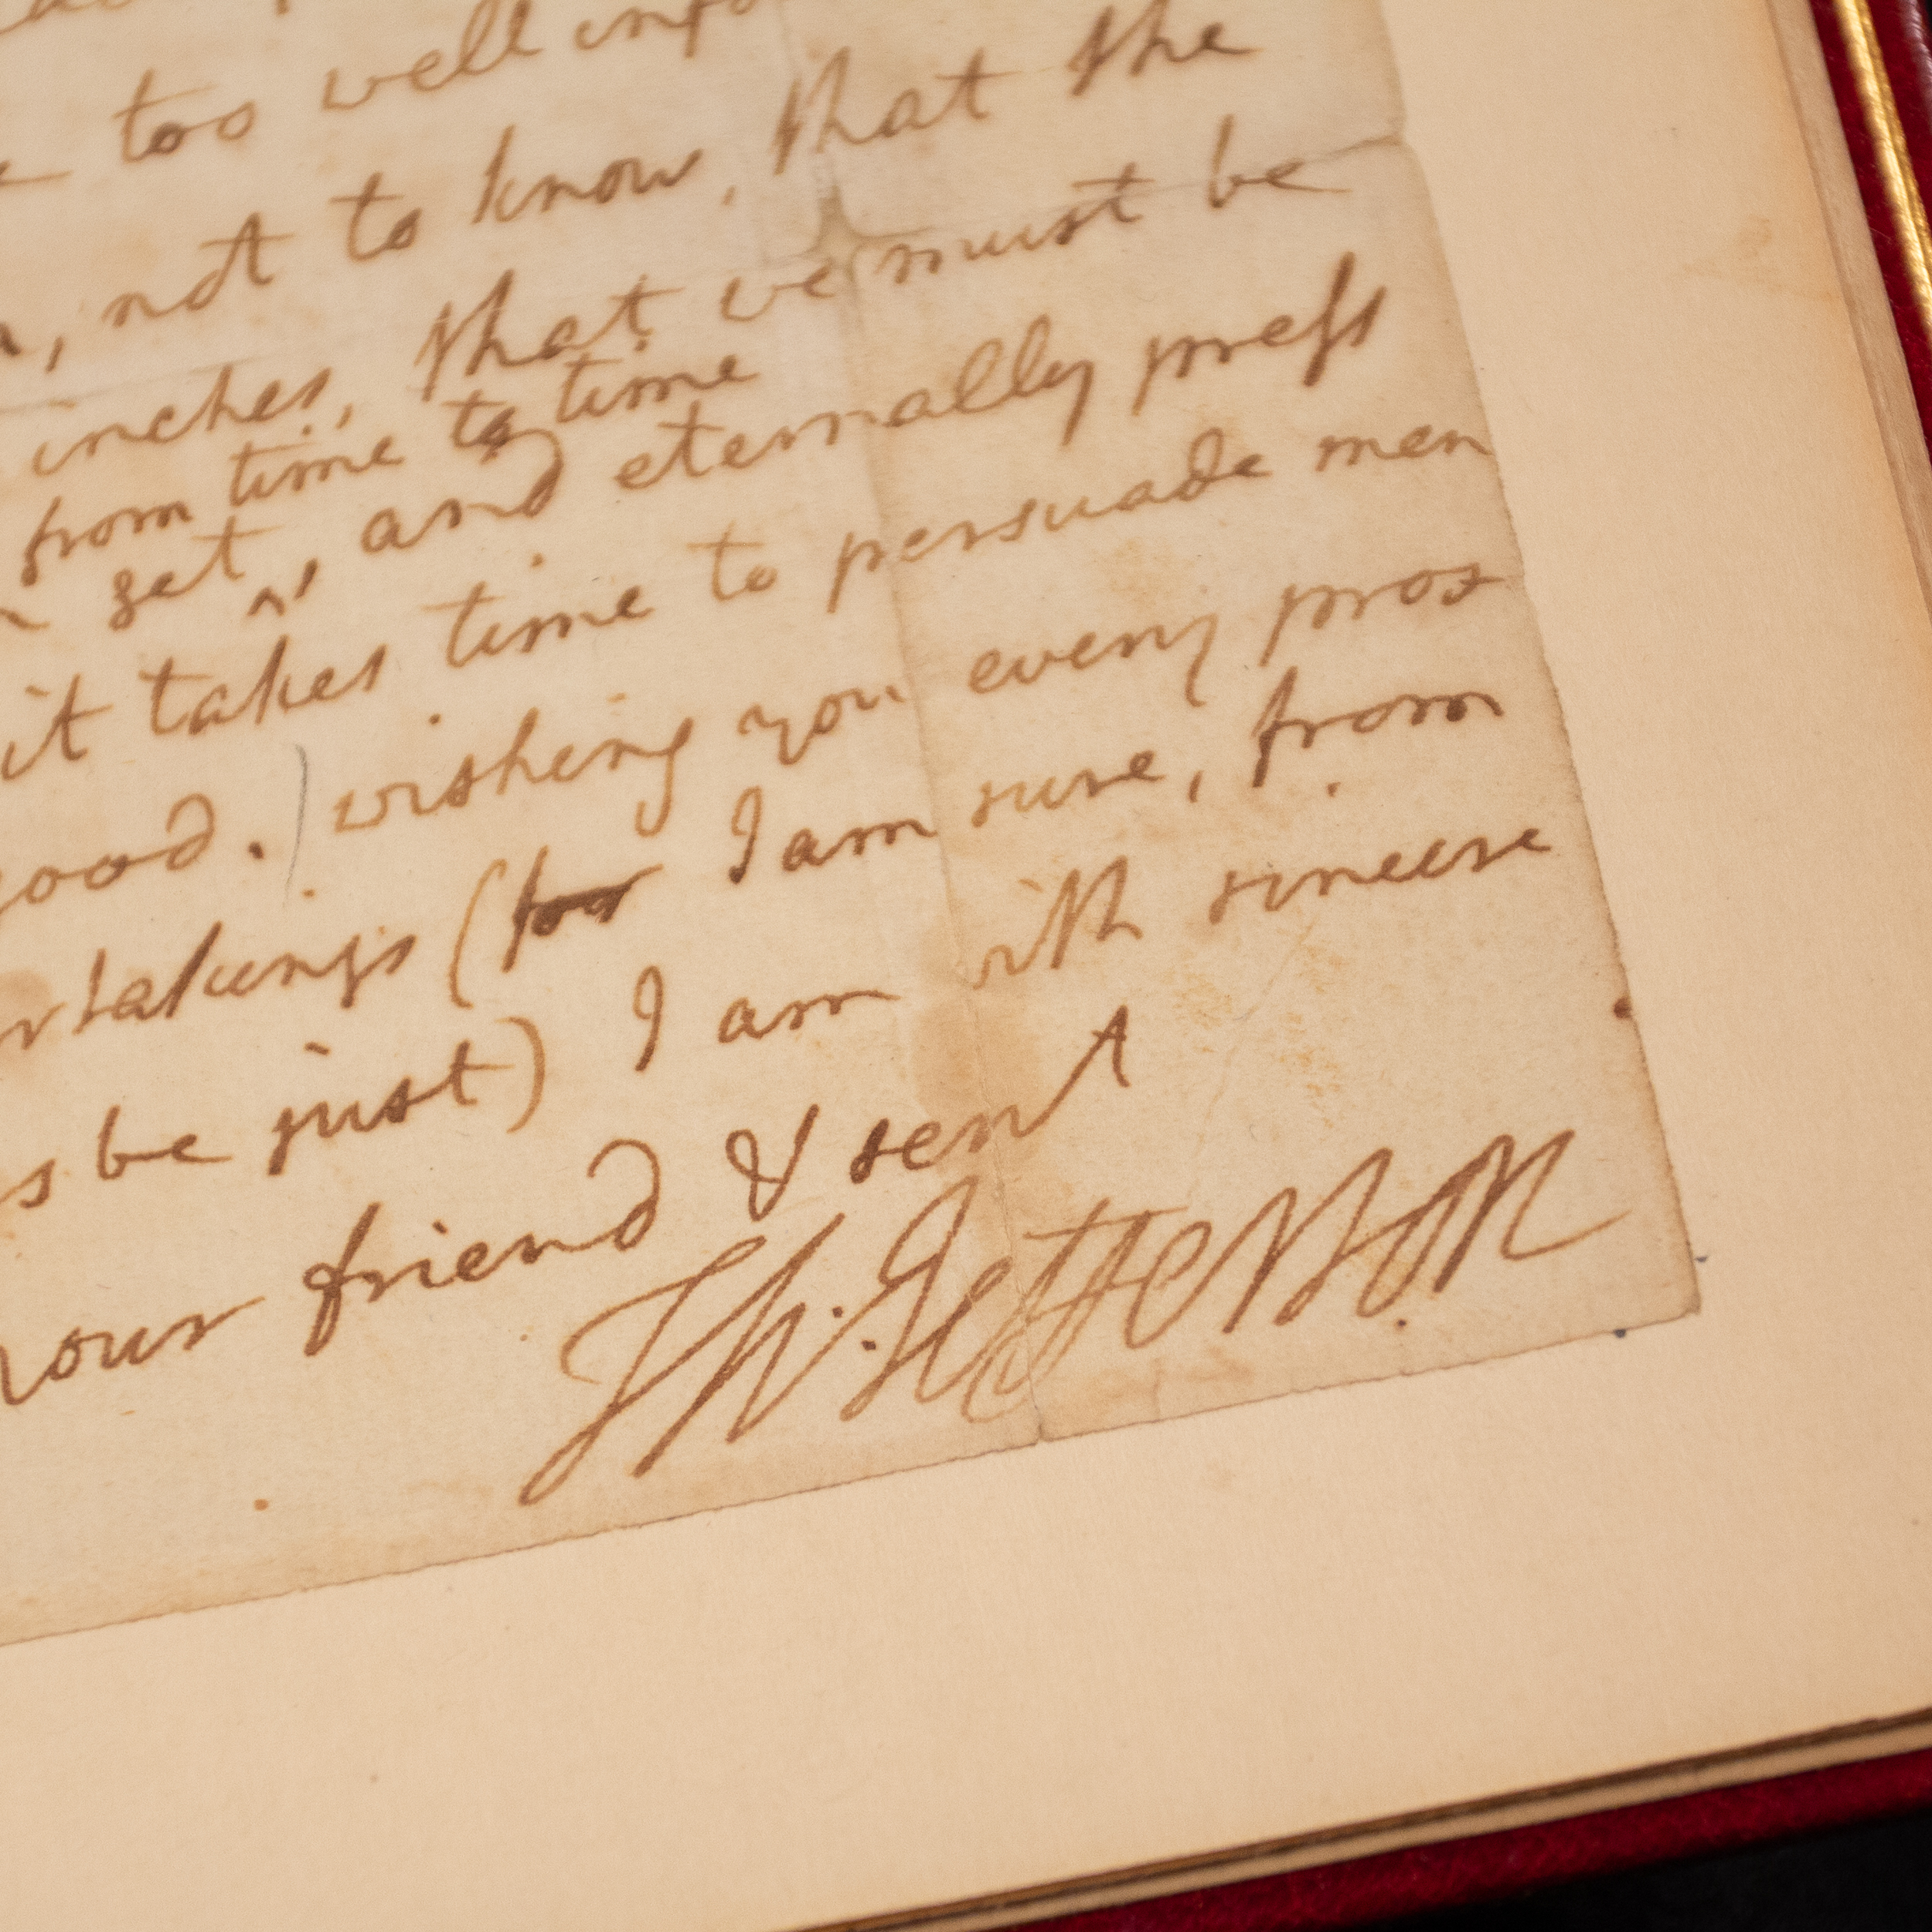 too well info
, not to know, that the
inches, that we must be
from time to time
get ^, and eternally press
it takes time to persuade men
good. wishing you every pros
rtakings (for I am sure, from
s be just) I am with sincere
your friend & servt
Th: Jefferson